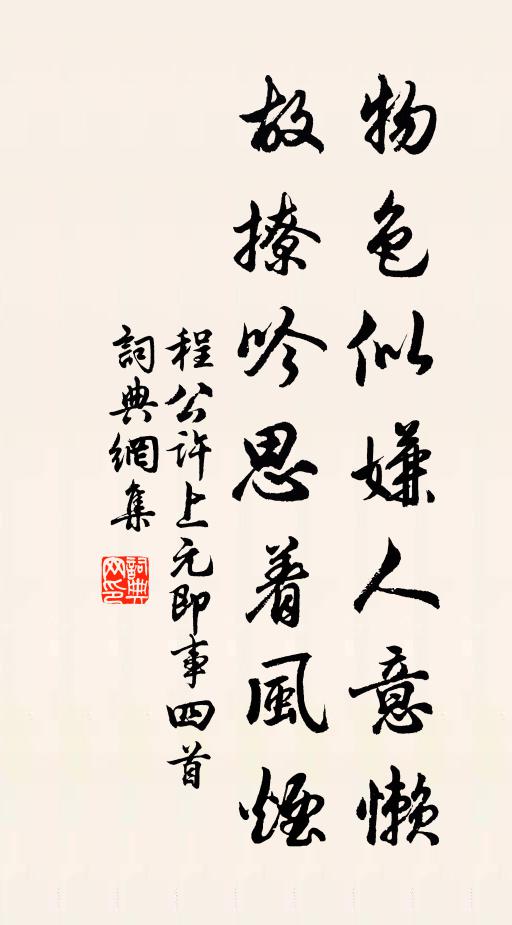 物色似嫌人意懶
故撩吟思着風煙
程公許上元即事四首
詞典網集
詞典網印